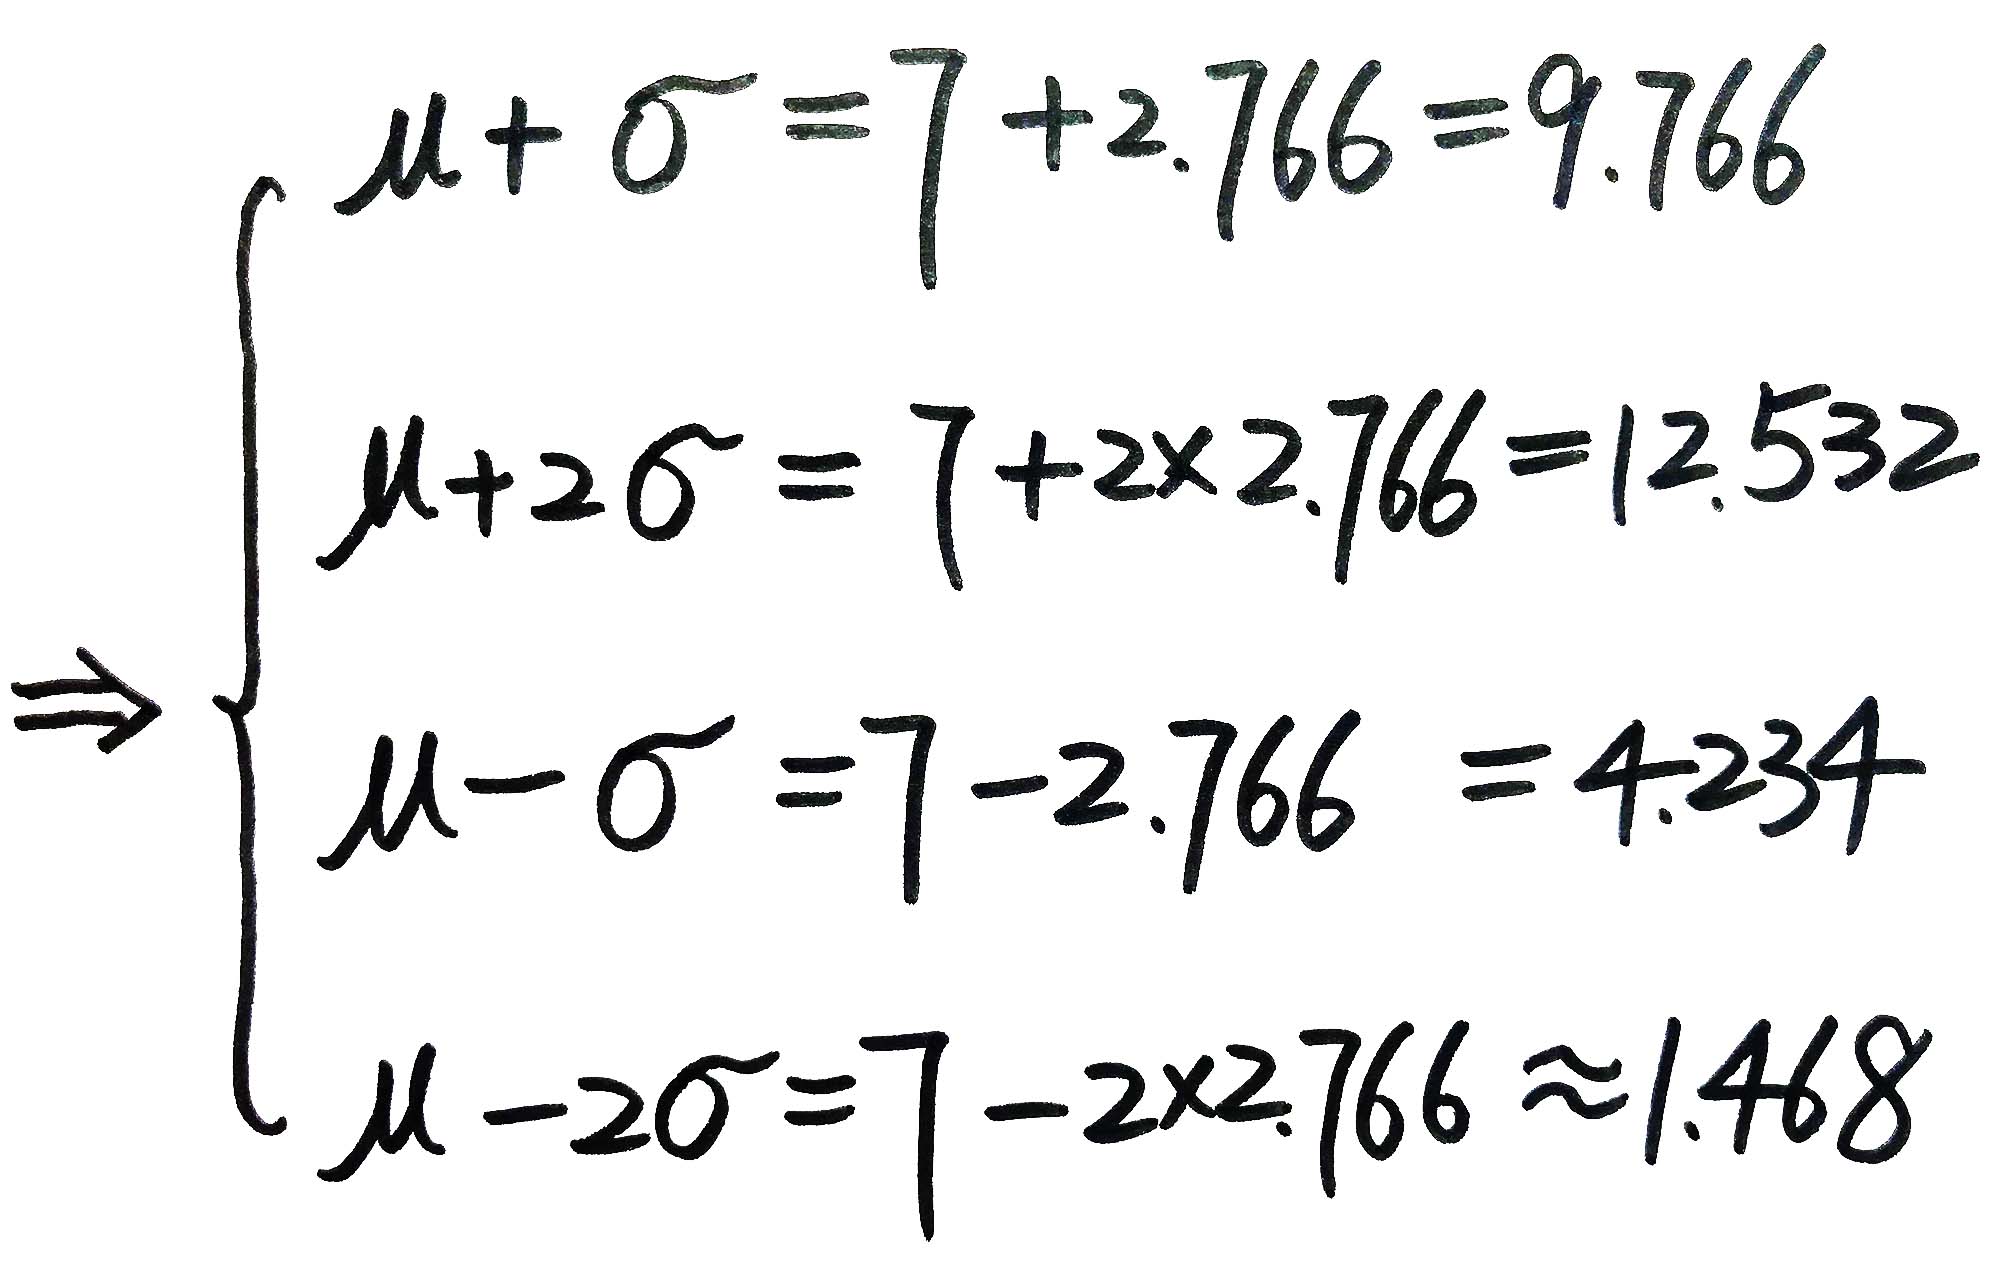 μ + σ = 7 + 2.766 = 9.766
μ + 2σ = 7 + 2 × 2.766 = 12.532
⇒ {
μ − σ = 7 − 2.766 = 4.234
μ − 2σ = 7 − 2 × 2.766 ≈ 1.468